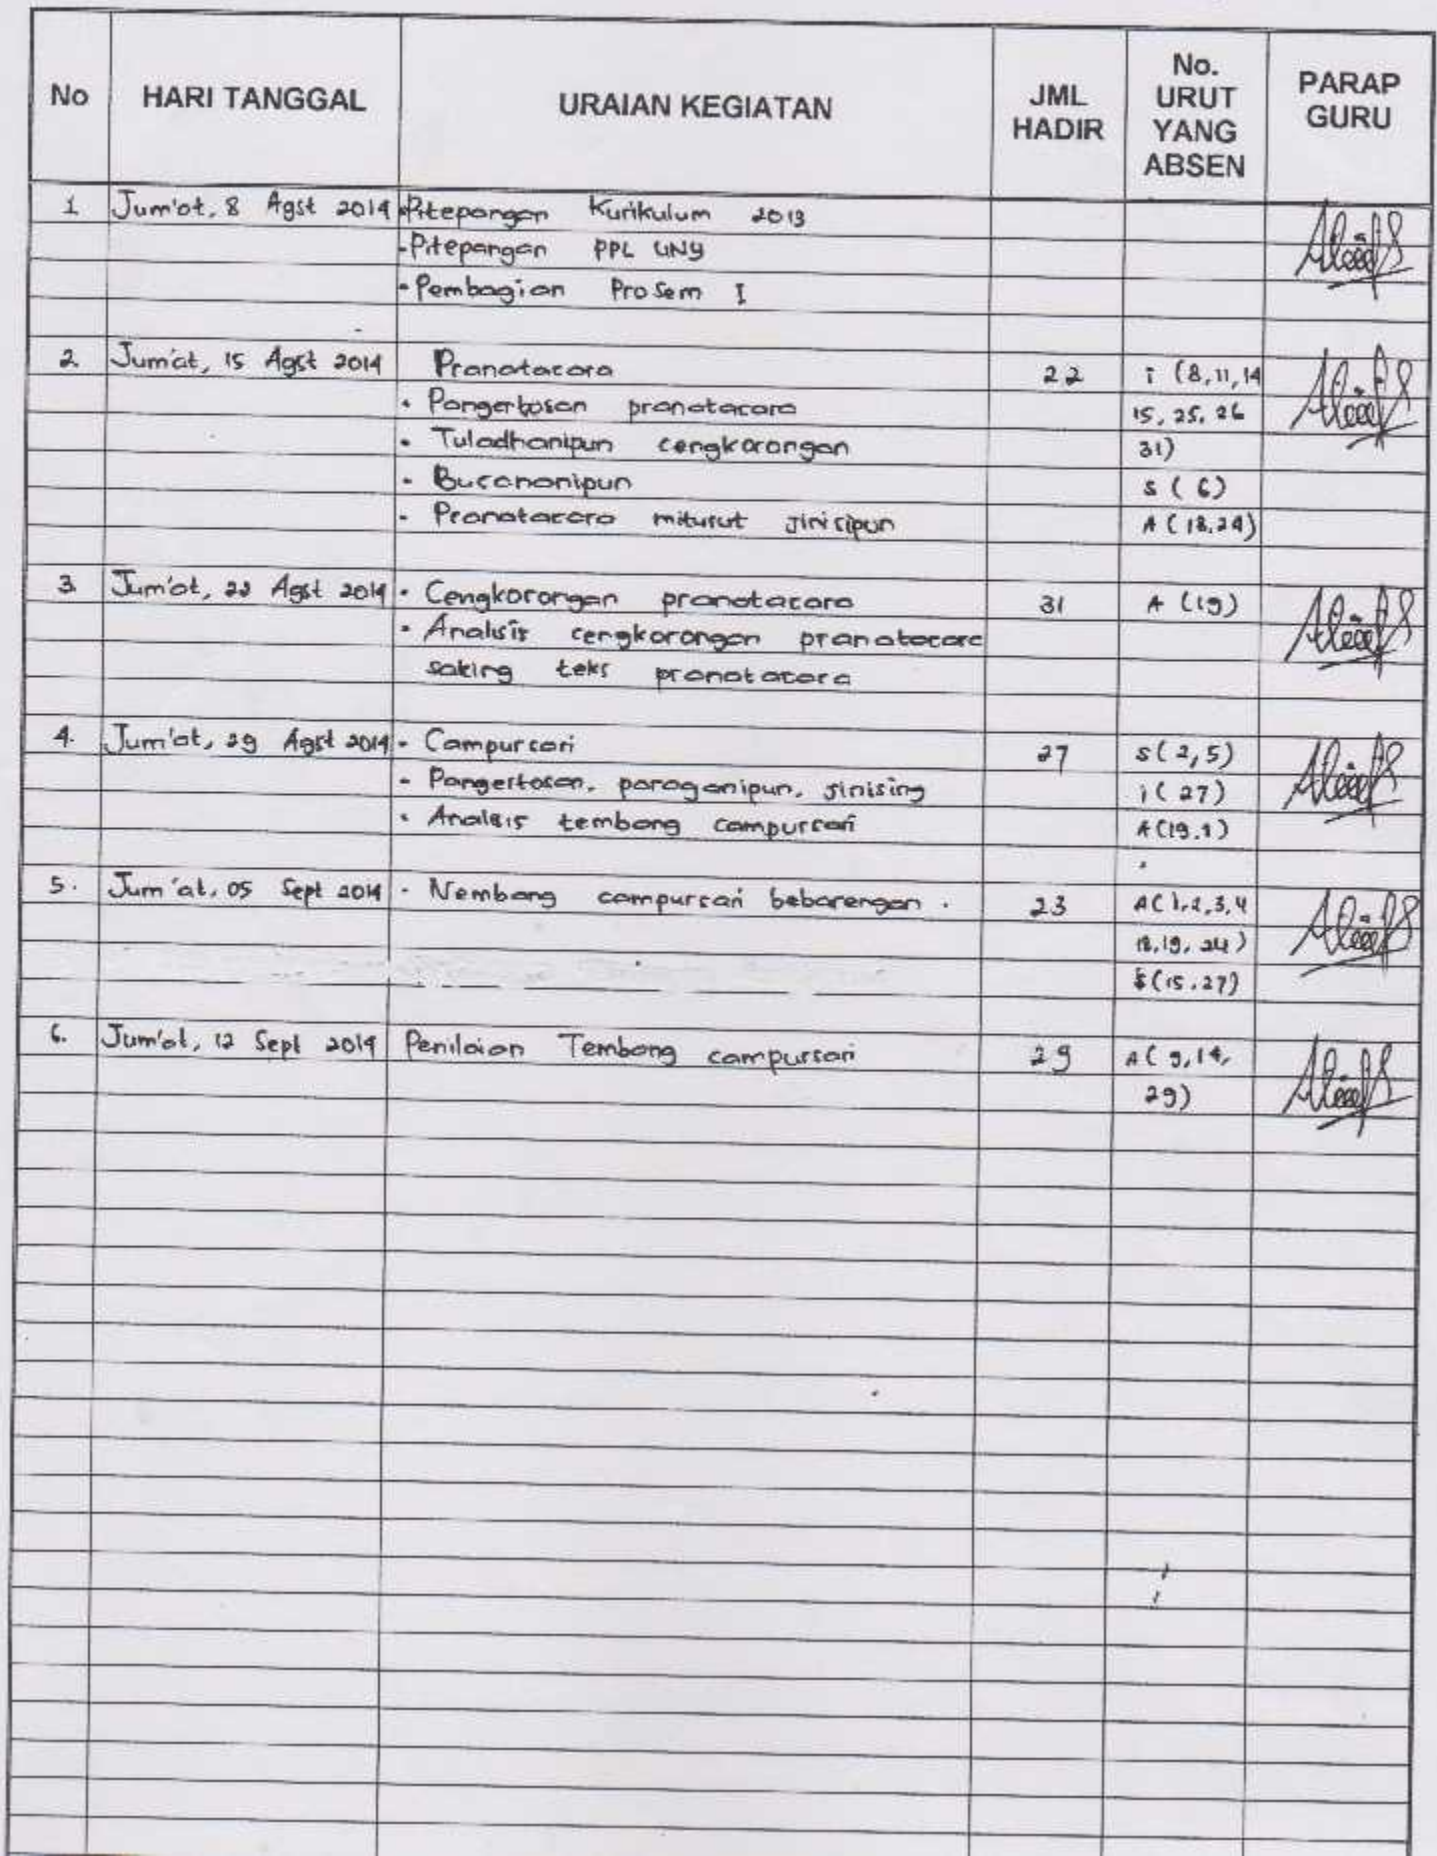 No HARI TANGGAL URAIAN KEGIATAN JML HADIR No. URUT YANG ABSEN PARAP GURU
1 Jum'at, 8 Agst 2014 - Pitepangan Kurikulum 2013
- Pitepangan PPL UNY
- Pembagian Prosem I
2. Jum'at, 15 Agst 2014 Pranatacara 22 i (8, 11, 14
- Pangertosan pranatacara 15, 25, 26
- Tuladhanipun cengkorongan 31)
- Busananipun s (6)
- Pranatacara miturut jinisipun A (18, 24)
3. Jum'at, 22 Agst 2014 - Cengkorongan pranatacara 31 A (19)
- Analisis cengkorongan pranatacara
saking teks pranatacara
4. Jum'at, 29 Agst 2014 - Campursari 27 s (2, 5)
- Pangertosan, paraganipun, jinising i (27)
- Analisis tembang campursari A (19.1)
5. Jum'at, 05 Sept 2014 - Nembang campursari bebarengan. 23 A (1, 2, 3, 4
18, 19, 24)
(15, 27)
6. Jum'at, 12 Sept 2014 Penilaian Tembang campursari 29 A (9, 14,
29)